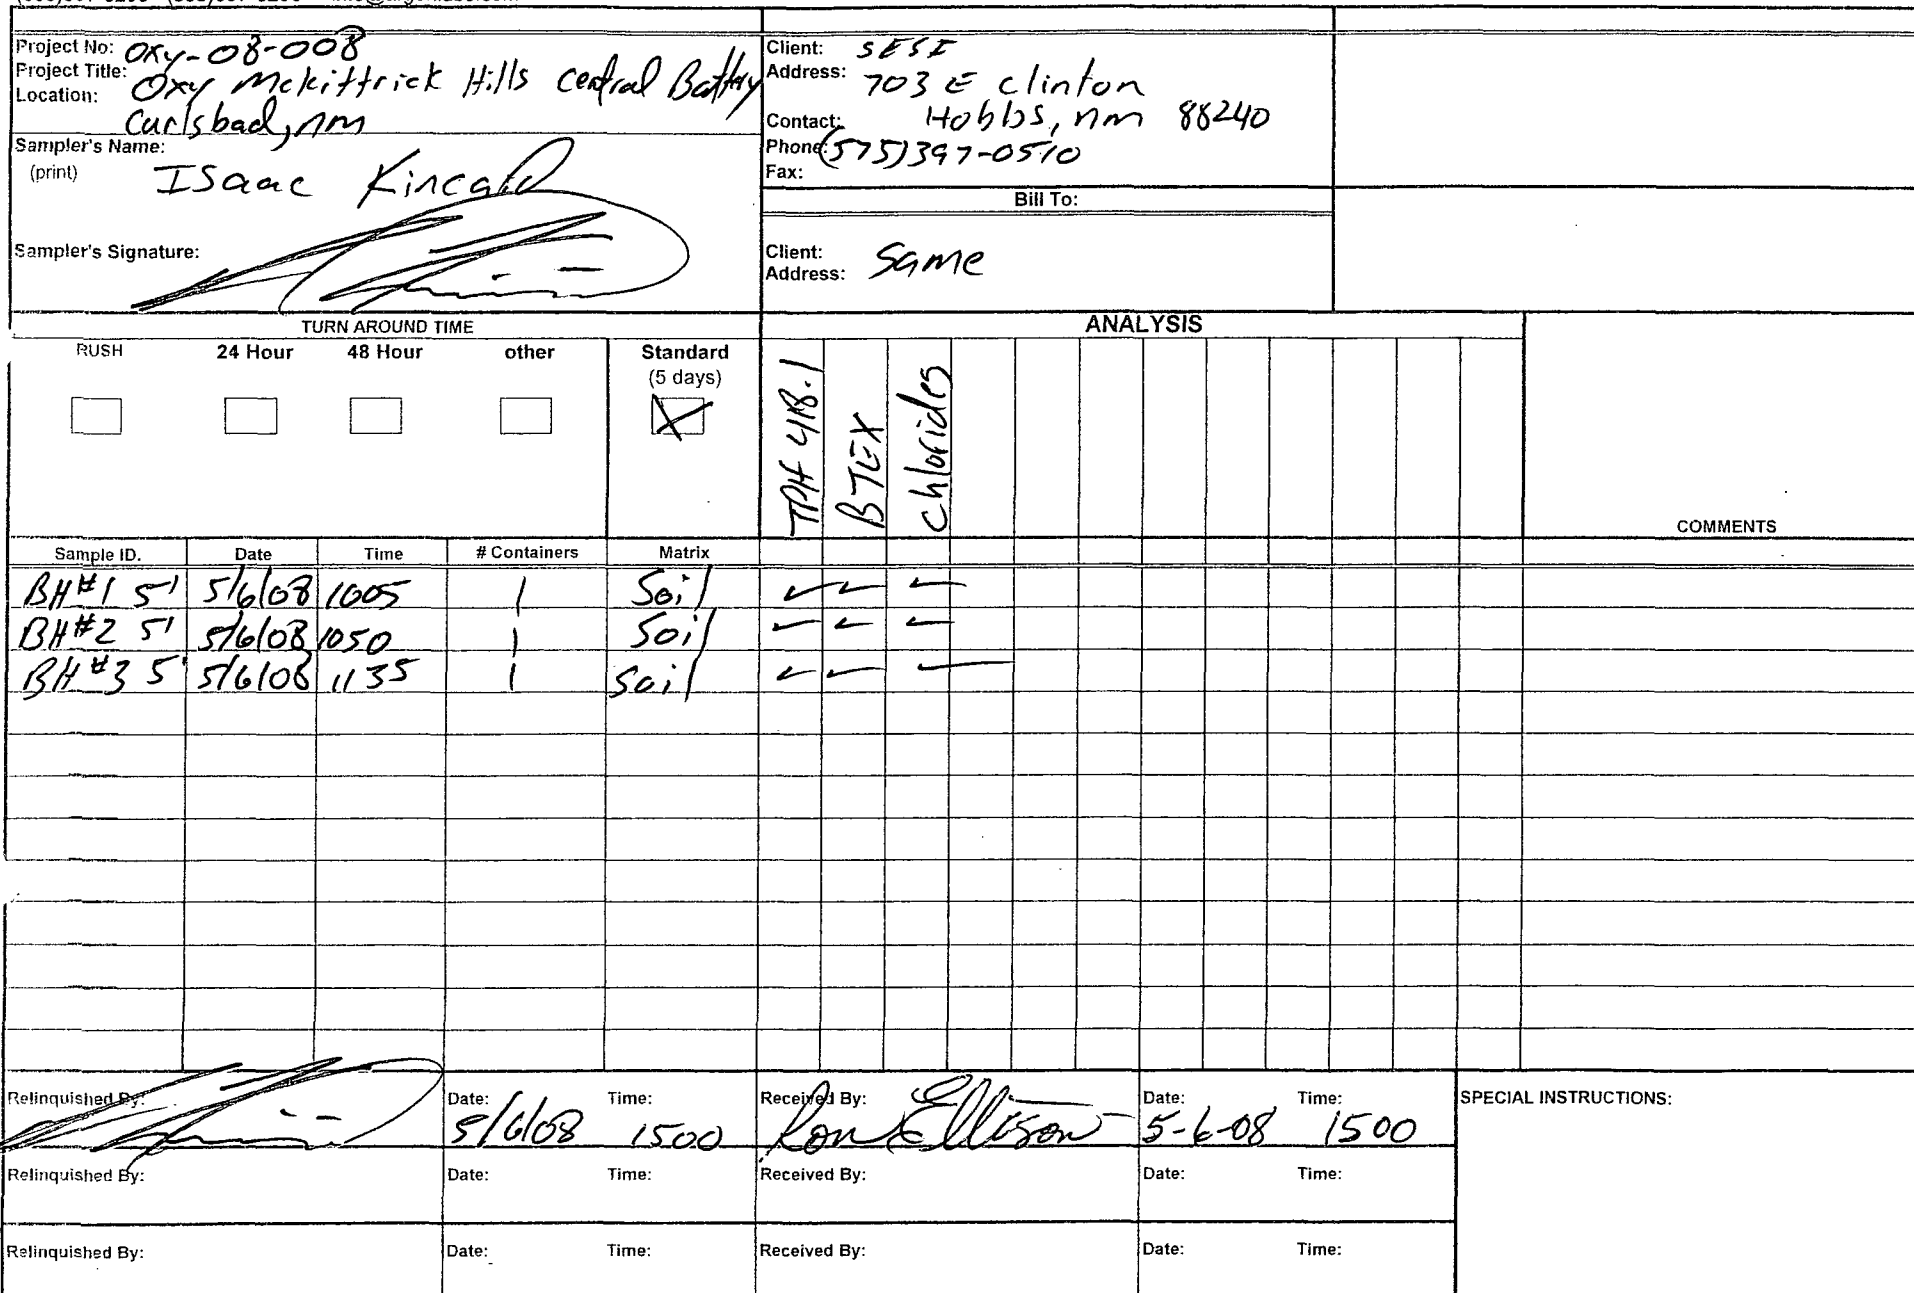 Project No: Oxy-08-008
Project Title: Oxy Mckittrick Hills Central Battery
Location: Carlsbad, nm
Sampler's Name:
(print) Isaac Kincaid
Sampler's Signature:
Client: SESI
Address: 703 E Clinton
Hobbs, nm 88240
Contact:
Phone: (575)397-0510
Fax:
Bill To:
Client: Same
Address:
TURN AROUND TIME
RUSH 24 Hour 48 Hour other Standard
(5 days)
X
ANALYSIS
TPH 418.1
BTEX
Chlorides
COMMENTS
Sample ID. Date Time # Containers Matrix
BH#1 5' 5/6/08 1005 1 Soil ✓ ✓ ✓
BH#2 5' 5/6/08 1050 1 Soil ✓ ✓ ✓
BH#3 5' 5/6/08 1135 1 Soil ✓ ✓ ✓
Relinquished By: Date: 5/6/08 Time: 1500 Received By: Ron Ellison Date: 5-6-08 Time: 1500 SPECIAL INSTRUCTIONS:
Relinquished By: Date: Time: Received By: Date: Time:
Relinquished By: Date: Time: Received By: Date: Time: